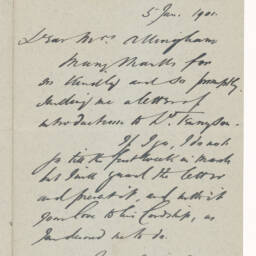 5 Jan. 1901.
Dear Mrs Allingham
Many thanks for
so kindly and so promptly
sending me a letter of
introduction to Ld. Tennyson.
If I go, I do not
go till the first week in March
but I will guard the letter
and present it, and with it
your love to his Lordship, as
you desired me to do.